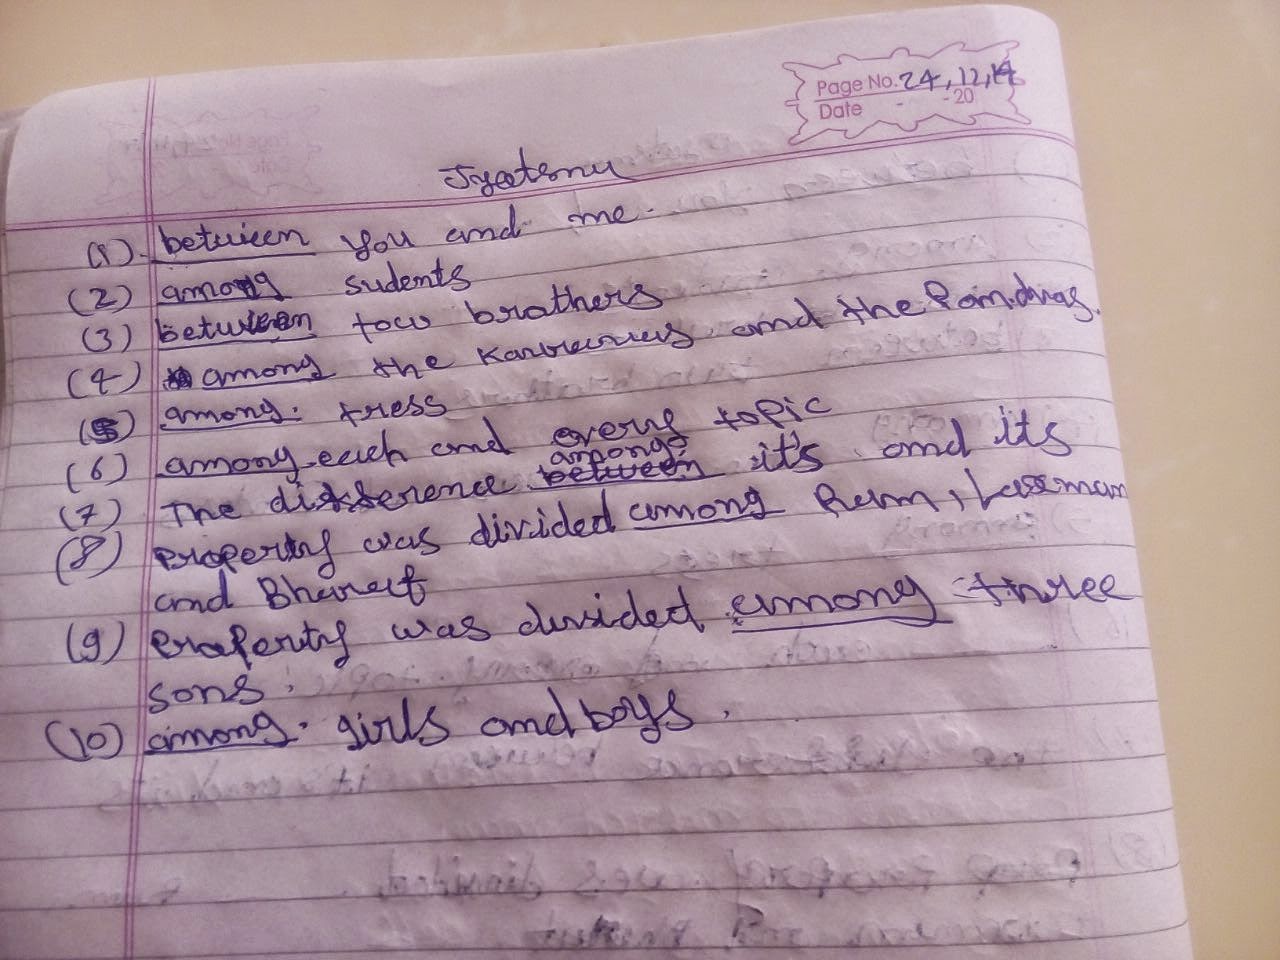 Page No. 24, 12, 14
Date - - 20
Jyeetsnu
(1). between you and me.
(2) among sudents
(3) between tow brothers
(4) among the Karveuvus and the Pandvas.
(5) among. tress
(6) among each and every topic
among.
(7) The difference between it's and its
(8) Property was divided among Ram, Laxman
and Bharat
(9) Property was divided among three
sons.
(10) among. girls and boys.